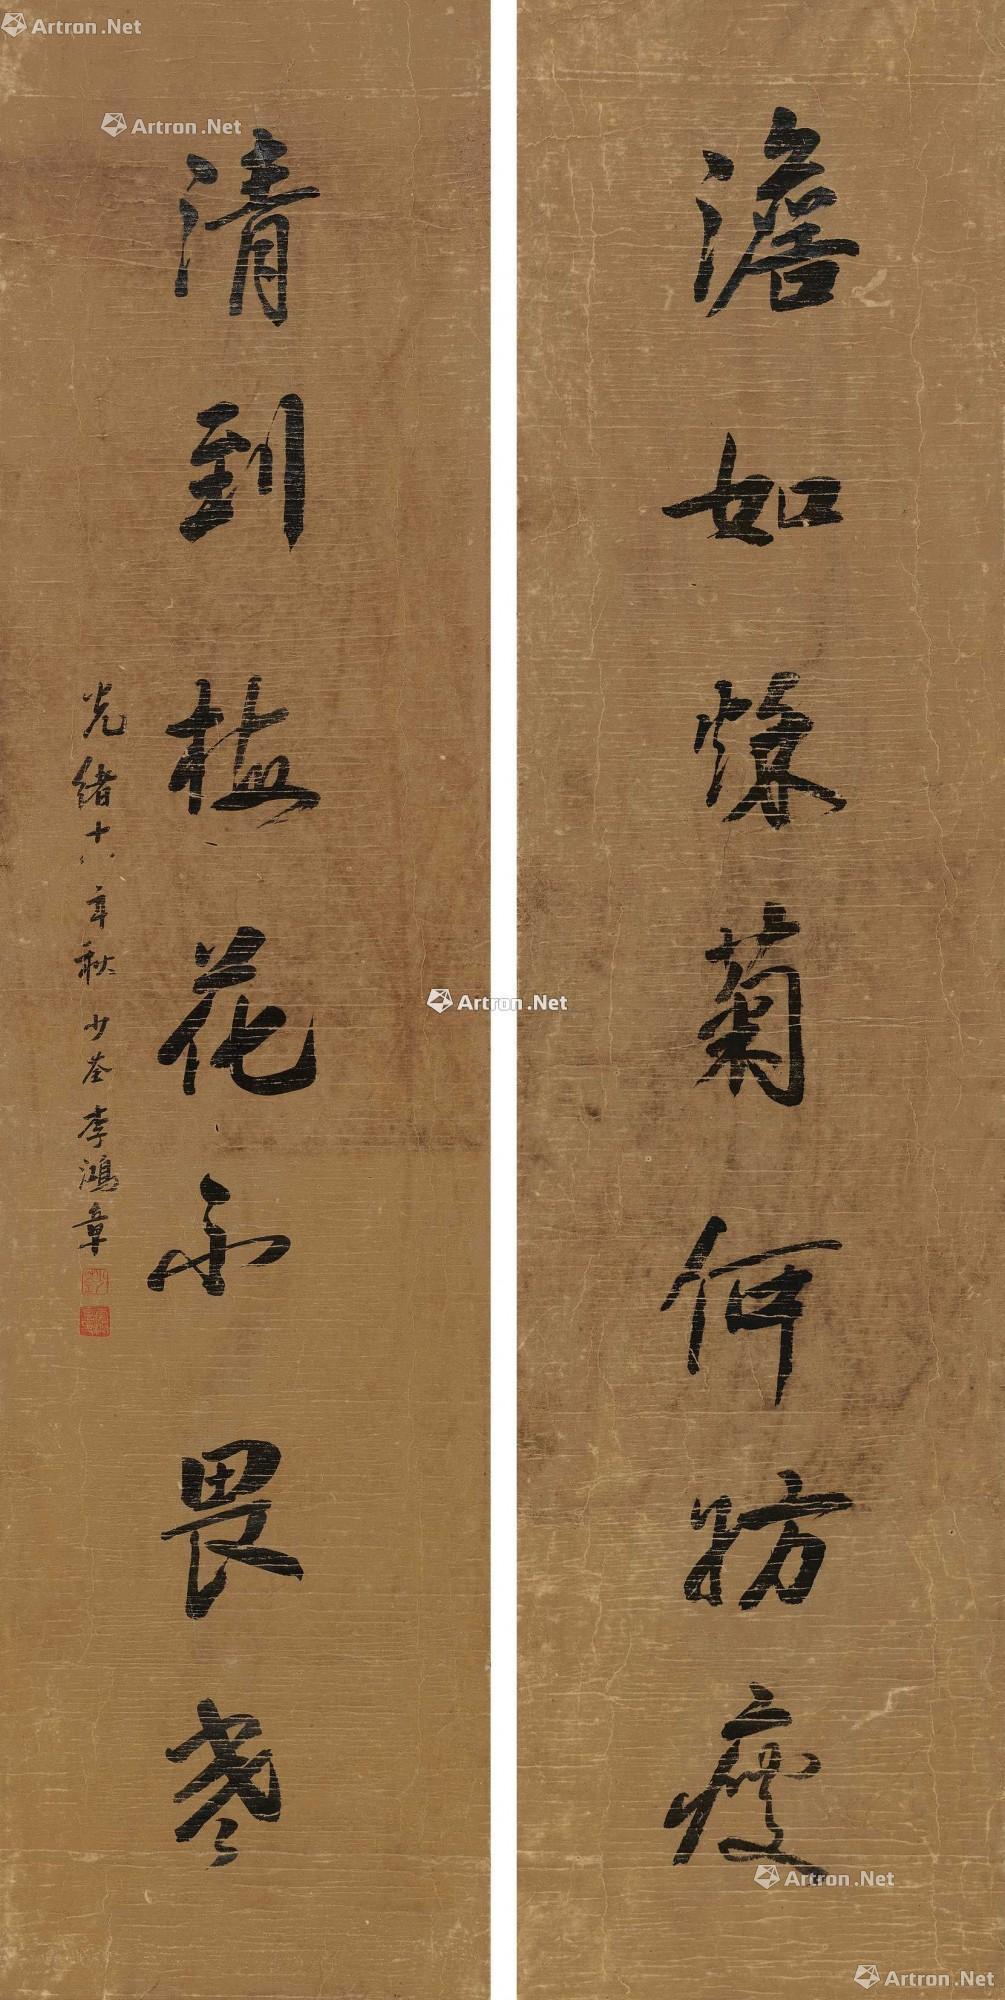 澹如烁菊何妨瘦
清到梅花不畏寒
光绪十八年秋 少荃李鸿章
Artron.Net
Artron.Net
Artron.Net
Artron.Net
Artron.Net
Artron.Net